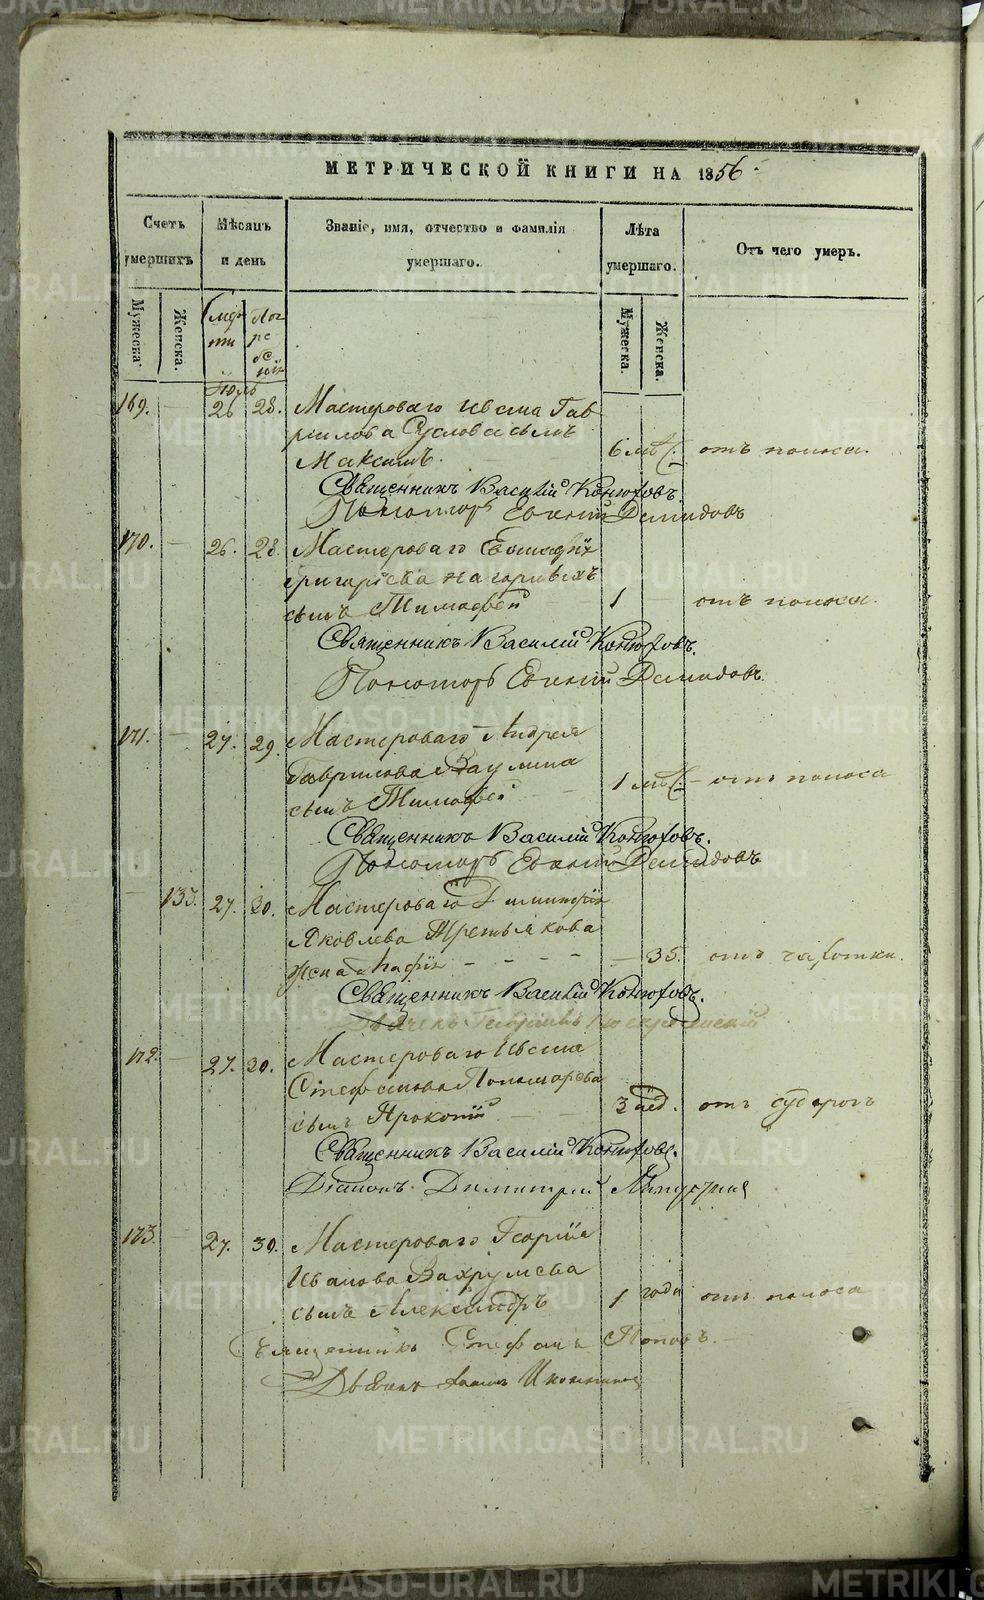 МЕТРИЧЕСКОЙ КНИГИ НА 1856.
Счетъ умершихъ
Мѣсяцъ и день
Званіе, имя, отчество и фамилія умершаго.
Лѣта умершаго.
Отъ чего умеръ.
Мужеска.
Женска.
Смерти
Погребенія
Мужеска.
Женска.
Іюль
169. 26 28. Мастероваго Ивана Гав
рилова Суслова сынъ
Максимъ. 6 мѣс. отъ поноса.
Священникъ Василій Конюховъ.
Пономарь Евгеній Демидовъ
170. 26. 28. Мастероваго
Григорьева Нагорныхъ
сынъ Тимофей 1 отъ поноса.
Священникъ Василій Конюховъ.
Пономарь Евгеній Демидовъ.
171. 27. 29. Мастероваго Андрея
Гаврилова Ваулина
сынъ Тимофей 1 мѣс. отъ поноса
Священникъ Василій Конюховъ.
Пономарь Евгеній Демидовъ
133. 27. 30. Мастероваго Димитрія
Яковлева Третьякова
жена 35. отъ чахотки.
Священникъ Василій Конюховъ.
172. 27. 30. Мастероваго Ивана
Стефанова Пономарева
сынъ Прокопій 3 нед. отъ
Священникъ Василій Конюховъ.
Діаконъ Димитрій
173. 27. 30. Мастероваго Георгія
Иванова Вахрушева
сынъ Александръ 1 года отъ поноса
Священникъ Стефанъ Поповъ.
METRIKI.GASO-URAL.RU